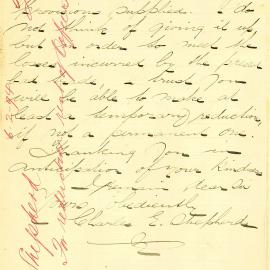 provisions supplied. I do
not think of giving it up
but in order to meet the
losses incurred by the present
bad trade I trust you
will be able to make at
least a temporary reduction,
if not a permanent one.
Thanking you in
anticipation of your kindness
I remain dear Sir
Yours Obediently
Charles E. Shepherd
Shepherd 6.2.94
In reduction of